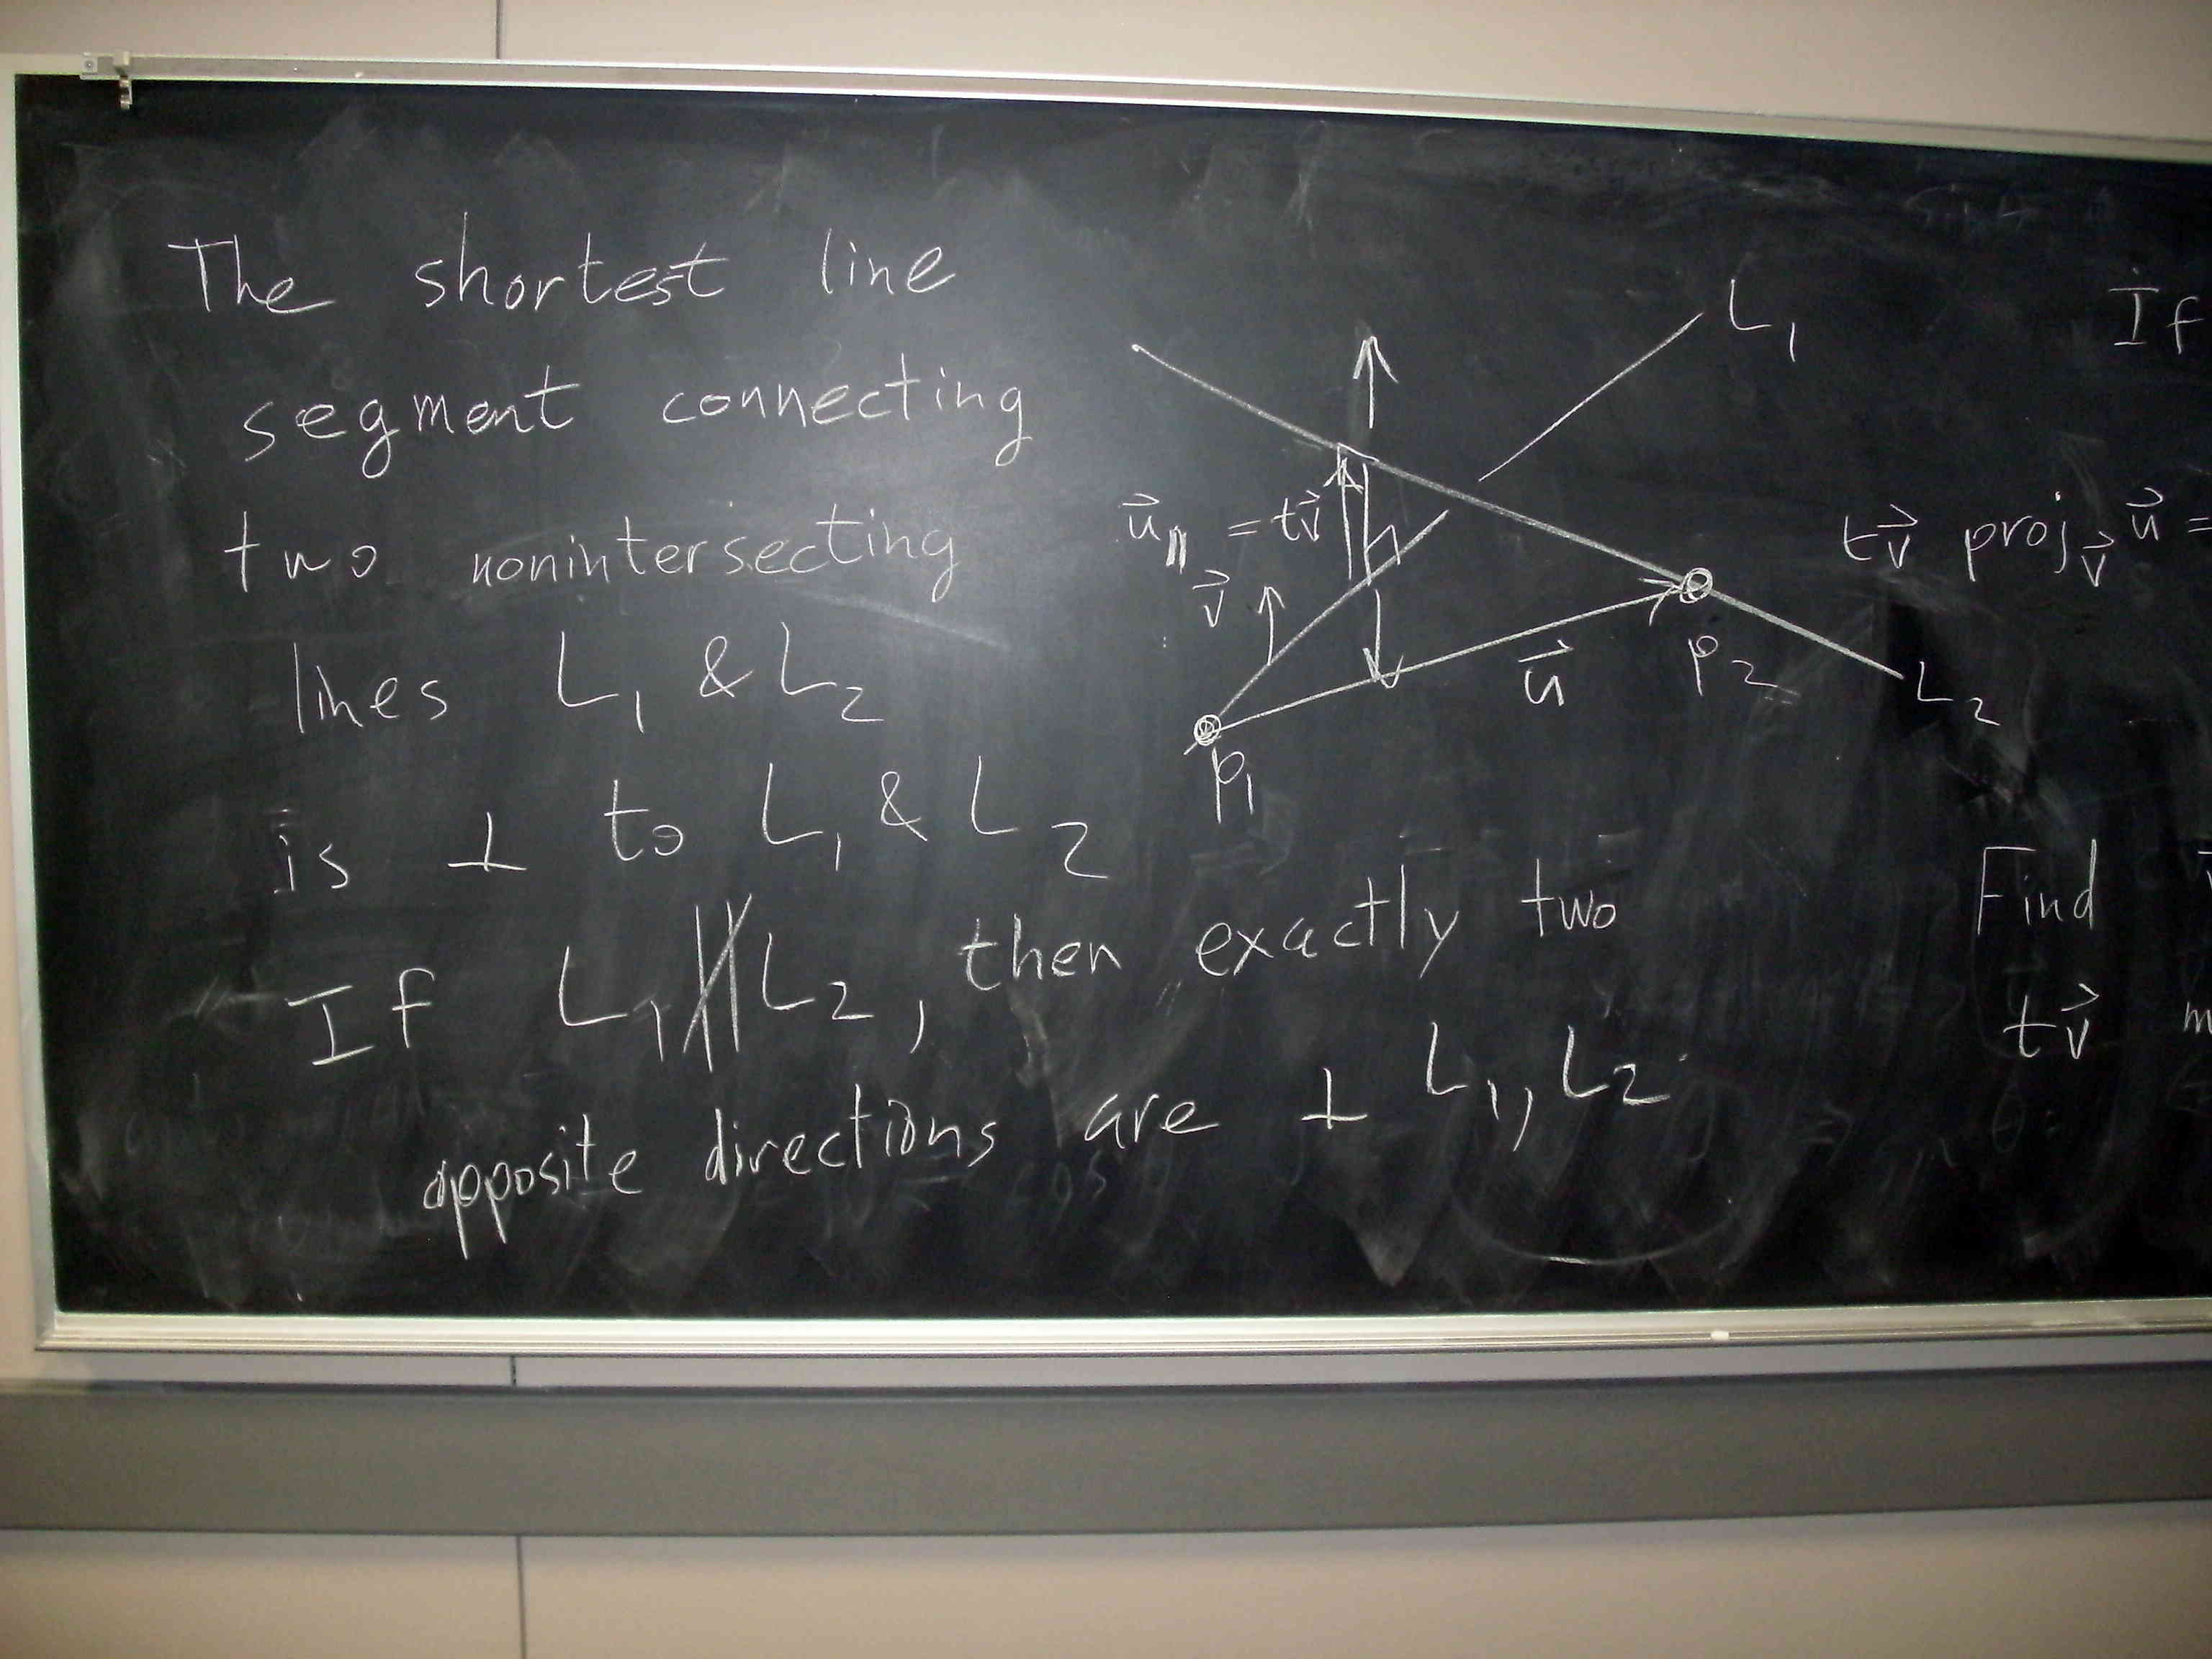 The shortest line
segment connecting
two nonintersecting
lines L₁ & L₂
is ⊥ to L₁ & L₂
If L₁ ∦ L₂, then exactly two
opposite directions are ⊥ L₁, L₂
L₁
u⃗∥ = tv⃗
v⃗
u⃗
P₂
L₂
P₁
If
tv⃗ proj_v⃗ u⃗ =
Find
tv⃗